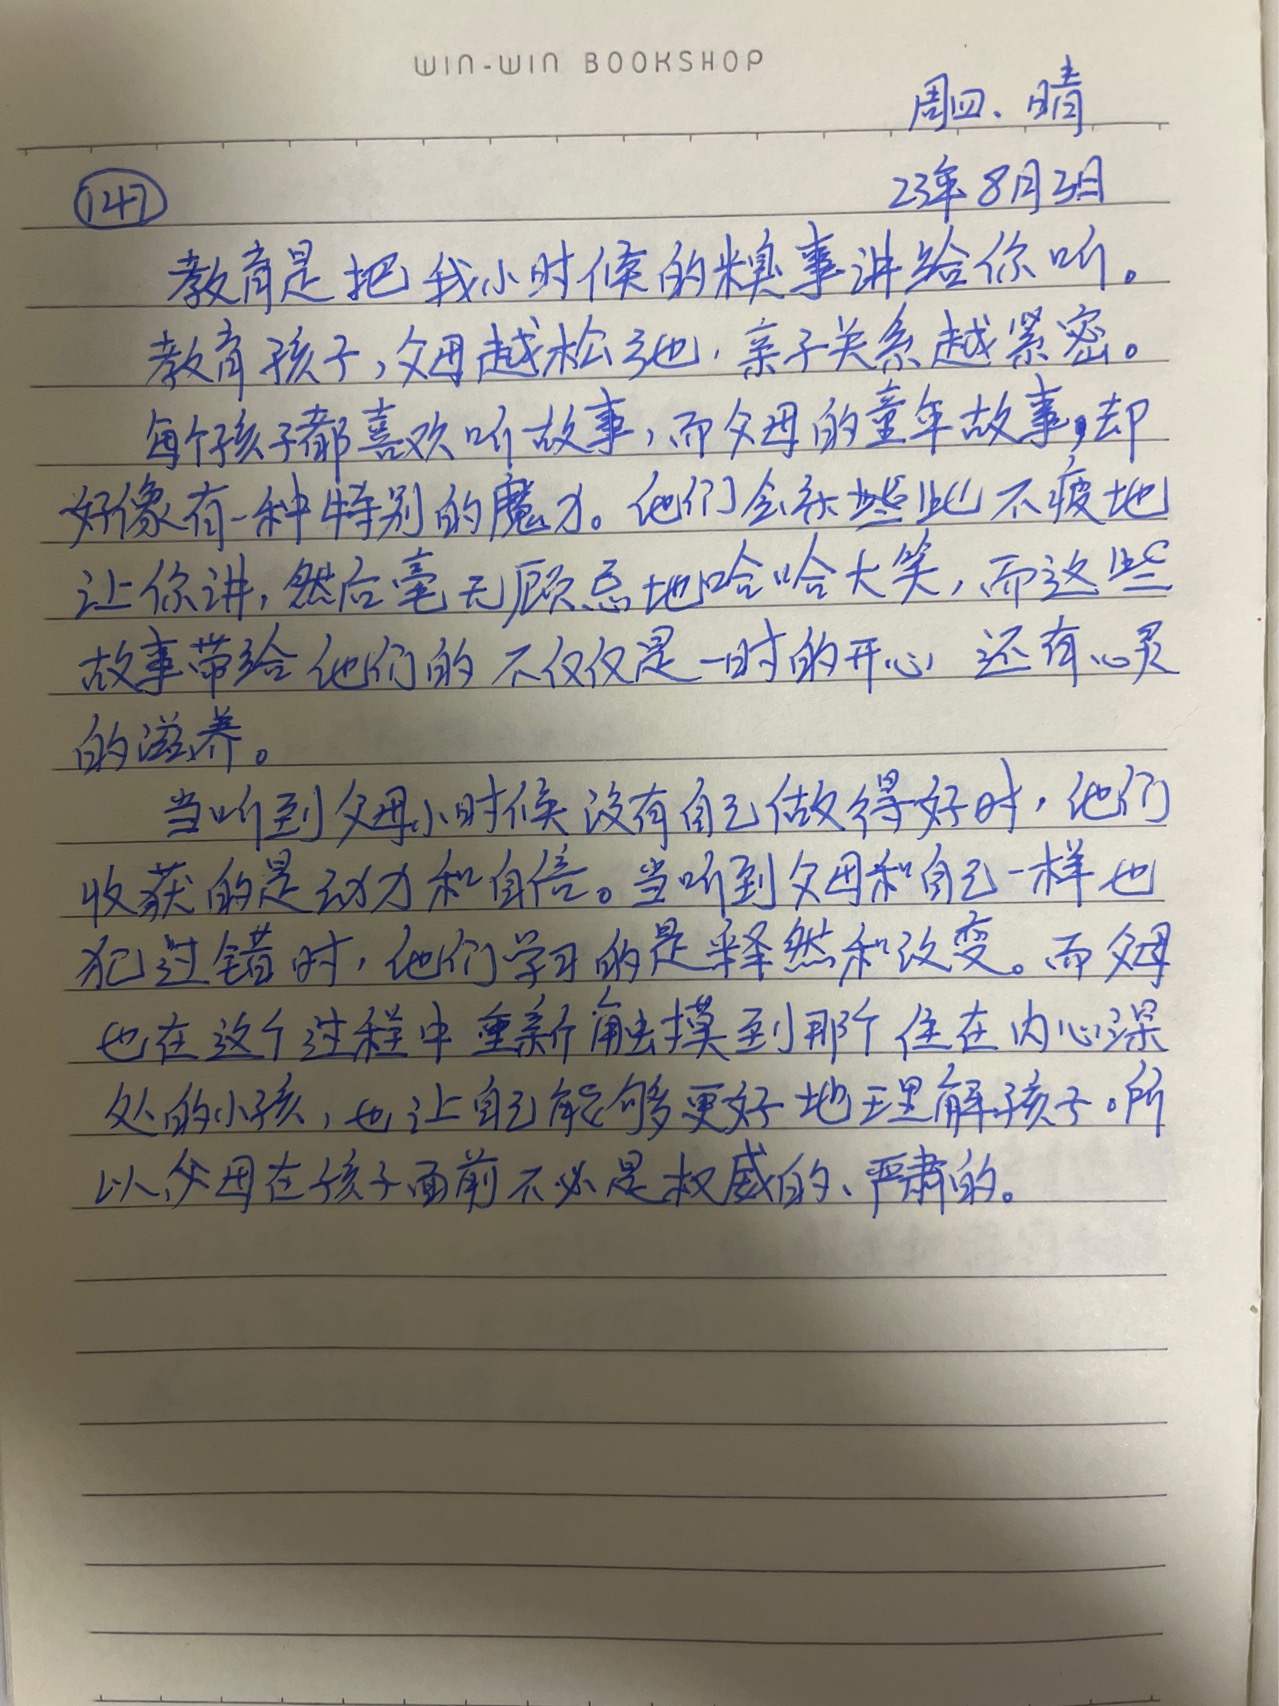 WIN-WIN BOOKSHOP
周四、晴
147
23年8月3日
教育是把我小时候的糗事讲给你听。
教育孩子，父母越松弛，亲子关系越紧密。
每个孩子都喜欢听故事，而父母的童年故事，却
好像有一种特别的魔力。他们会乐此不疲地
让你讲，然后毫无顾忌地哈哈大笑，而这些
故事带给他们的不仅仅是一时的开心，还有心灵
的滋养。
当听到父母小时候没有自己做得好时，他们
收获的是动力和自信。当听到父母和自己一样也
犯过错时，他们学习的是释然和改变。而父母
也在这个过程中重新触摸到那个住在内心深
处的小孩，也让自己能够更好地理解孩子。所
以父母在孩子面前不必是权威的、严肃的。